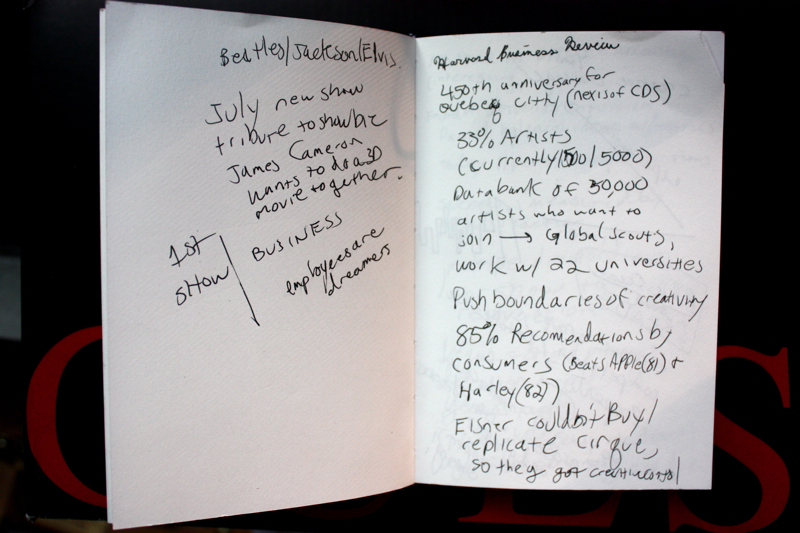 Beatles/Jackson/Elvis.
July new show
tribute to showbiz
James Cameron
wants to do a 3D
movie together.
1st
show
BUSINESS
employees are
dreamers
Harvard Business Review
450th anniversary for
Quebec citty (nexis of CDS)
33% Artists
(currently 1500/5000)
Databank of 30,000
artists who want to
join → Global scouts,
work w/ 22 universities
Push boundaries of creativity
85% Recomendations by
consumers (Beats Apple(81) +
Harley(82))
Eisner couldn't Buy/
replicate cirque,
so they got